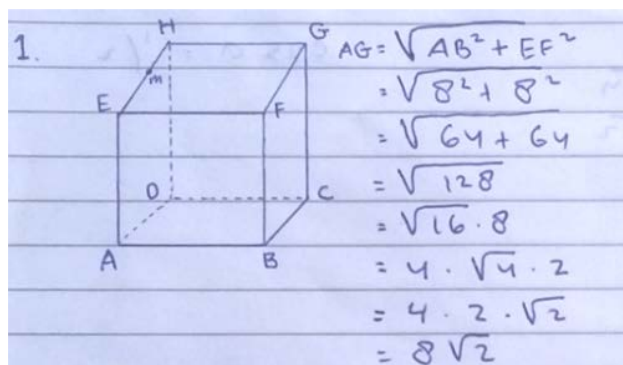 1.
H
G
E
m
F
D
C
A
B
AG = √AB² + EF²
= √8² + 8²
= √64 + 64
= √128
= √16 · 8
= 4 · √4 · 2
= 4 · 2 · √2
= 8√2